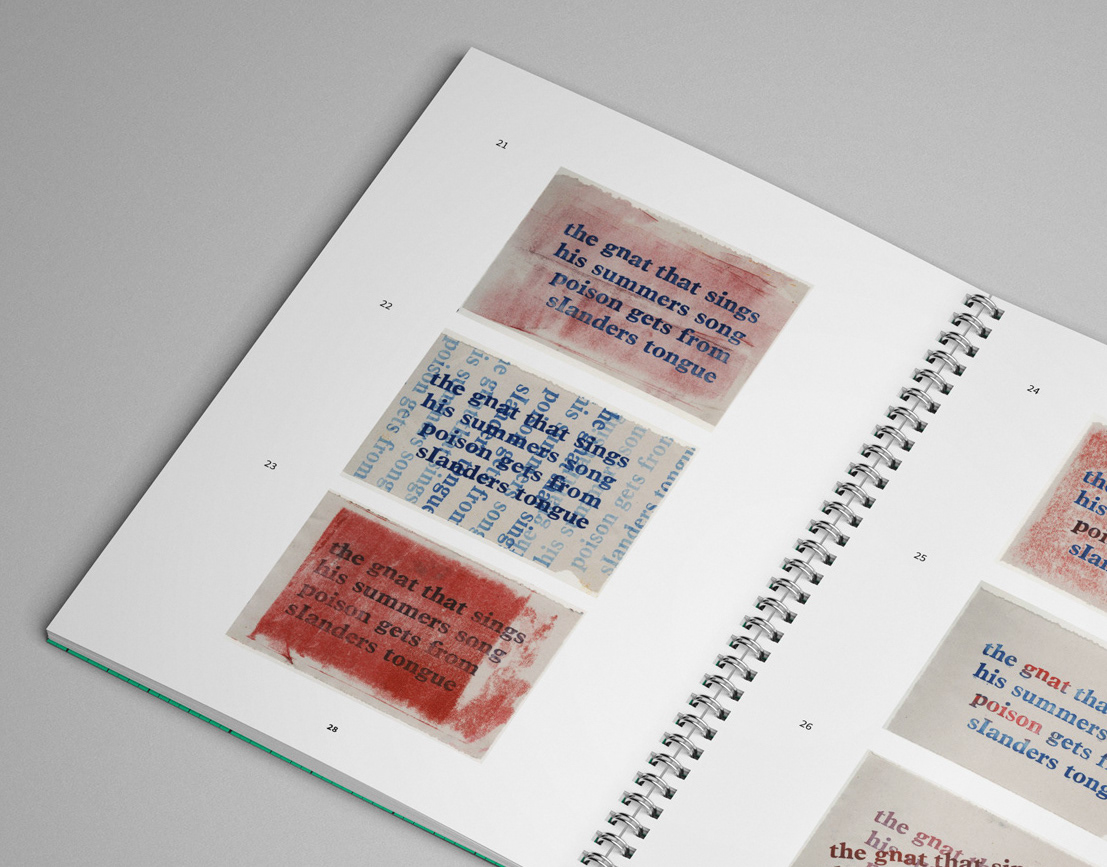 21
the gnat that sings
his summers song
poison gets from
sIanders tongue
22
the gnat that sings
his summers song
poison gets from
sIanders tongue
23
the gnat that sings
his summers song
poison gets from
sIanders tongue
28
24
the
his
poi
sIan
25
the gnat tha
his summers
poison gets f
sIanders tong
26
the gnat
his
the gnat that sin